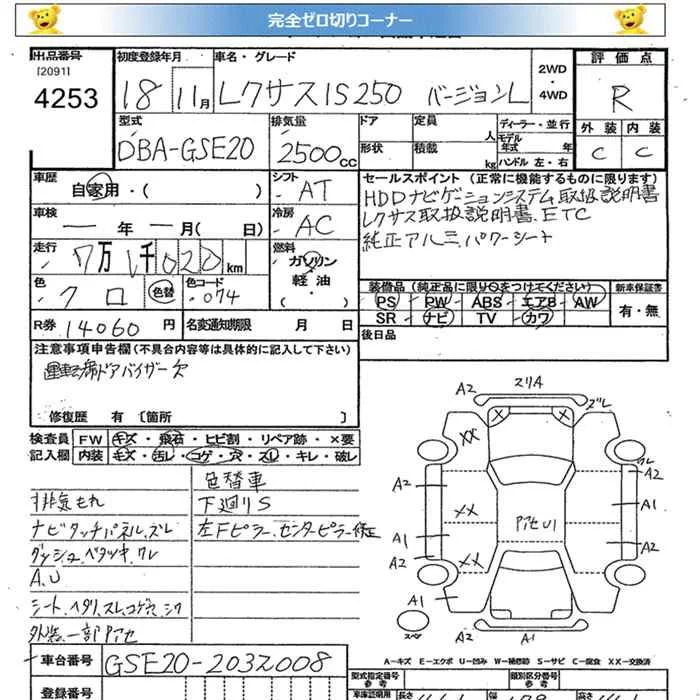 完全ゼロ切りコーナー
出品番号 初度登録年月 車名・グレード 2WD ・ 4WD 評価点
120911
4253 18 11月 レクサスIS250 バージョンL R
型式 排気量 ドア 定員 人 ディーラー・並行 外装 内装
DBA-GSE20 2500cc 形状 積載 kg モデル年式 年 ハンドル 左・右 C C
車歴 自家用・( ) シフト AT セールスポイント (正常に機能するものに限ります)
車検 ― 年 ― 月( 日) 冷房 AC HDDナビゲーションシステム取扱説明書
レクサス取扱説明書、ETC
純正アルミ、パワーシート
走行 7万1千020km 燃料 ガソリン・軽油・( )
色 クロ 色替 色コード 074 装備品 (純正品に限り○をつけてください) 新車保証書
PS PW ABS エアB AW 有・無
SR ナビ TV カワ
R券 14060円 名変通知期限 月 日 後日品
注意事項申告欄 (不具合内容等は具体的に記入して下さい)
運転席ドアバイザー欠
修復歴 有 [箇所 ]
検査員 FW キズ・飛石・ヒビ割・リペア跡・×要
記入欄 内装 キズ・汚レ・コゲ・穴・スレ・キレ・破レ
色替車
排気もれ 下廻りS
ナビタッチパネル、ズレ 左Fピラー、センターピラー修正
ダッシュ、ベタツキ、ワレ
A、U
シート、ヘタリ、スレ、コゲ穴、シワ
外装、一部アセ
A2 スリA
A2 ズレ
XX
A2 ワレ A2
XX アセU1 A1
A1 A2
A2 XX
A1 A1
スペア A2 A1
A-キズ E-エクボ U-凹み W-補修跡 S-サビ C-腐食 XX-交換済
車台番号 GSE20-2032008
型式指定番号 参考 類別区分番号 参考
登録番号 車庫証明用 長さ 幅